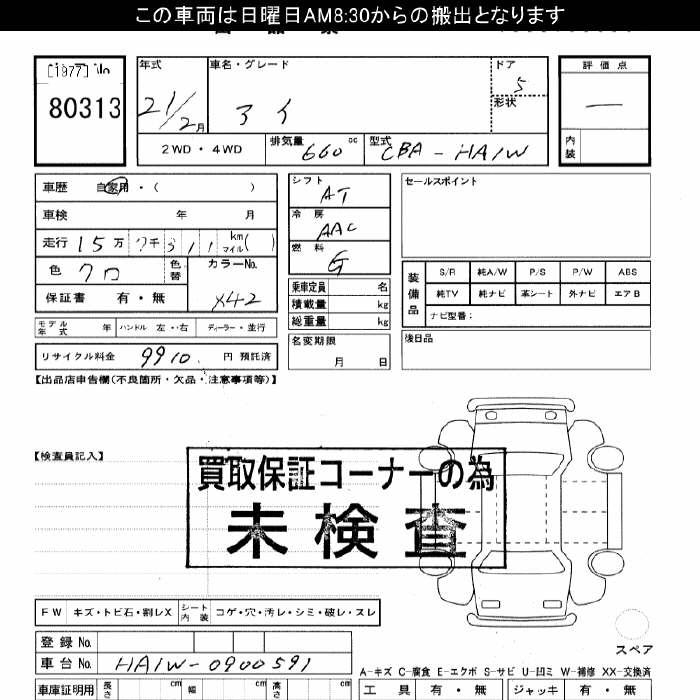 この車両は日曜日AM8:30からの搬出となります
[1977] No
80313
年式
21/2月
車名・グレード
アイ
ドア
5
形状
評価点
―
内装
2WD・4WD
排気量 660 cc
型式 CBA-HA1W
車歴 自家用・( )
車検 年 月
走行 15万7千311 km マイル( )
色 クロ 色替
カラーNo.
X42
保証書 有・無
モデル年式 年 ハンドル 左・右 ディーラー・並行
リサイクル料金 9910 円 預託済
シフト
AT
冷房
AAC
燃料
G
乗車定員 名
積載量 kg
総重量 kg
名変期限
月 日
セールスポイント
装備品
S/R 純A/W P/S P/W ABS
純TV 純ナビ 革シート 外ナビ エアB
ナビ型番:
後日品
【出品店申告欄(不良箇所・欠品・注意事項等)】
【検査員記入】
買取保証コーナーの為
未検査
FW キズ・トビ石・割レX シート内装 コゲ・穴・汚レ・シミ・破レ・スレ
スペア
登録No.
車台No. HA1W-0900591
A-キズ C-腐食 E-エクボ S-サビ U-凹ミ W-補修 XX-交換済
車庫証明用 長さ cm 幅 cm 高さ cm
工具 有・無 ジャッキ 有・無